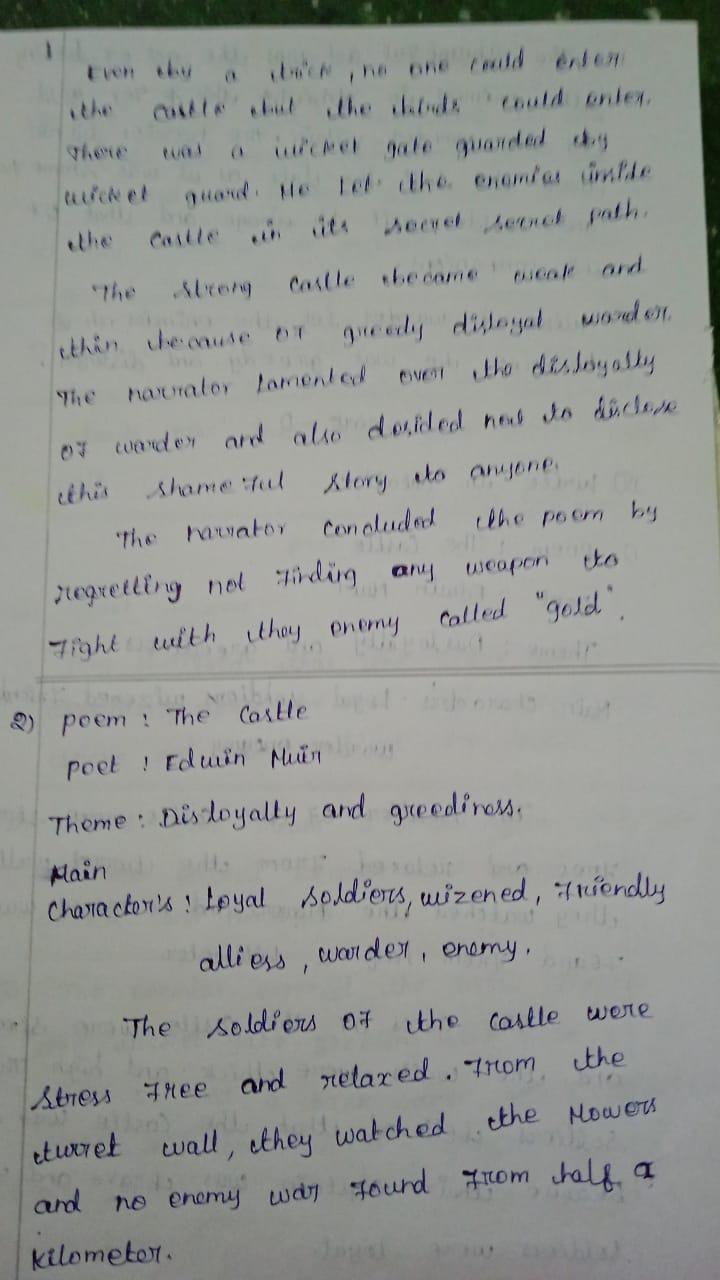 1
Even by a trick, no one could enter
the castle but the birds could enter.
There was a wicket gate guarded by
wicket guard. He let the enemies inside
the castle in its secret secret path.
The strong castle became weak and
thin because of greedy disloyal warder.
The narrator lamented over the disloyalty
of warder and also decided not to disclose
this shameful story to anyone.
The narrator concluded the poem by
regretting not finding any weapon to
fight with they enemy called "gold".
2) poem : The Castle
poet : Edwin Muir
Theme : Disloyalty and greediness.
Main
Character's : Loyal soldiers, wizened, friendly
alliess, warder, enemy.
The soldiers of the castle were
stress free and relaxed. From the
turret wall, they watched the Mowers
and no enemy was found from half a
kilometer.